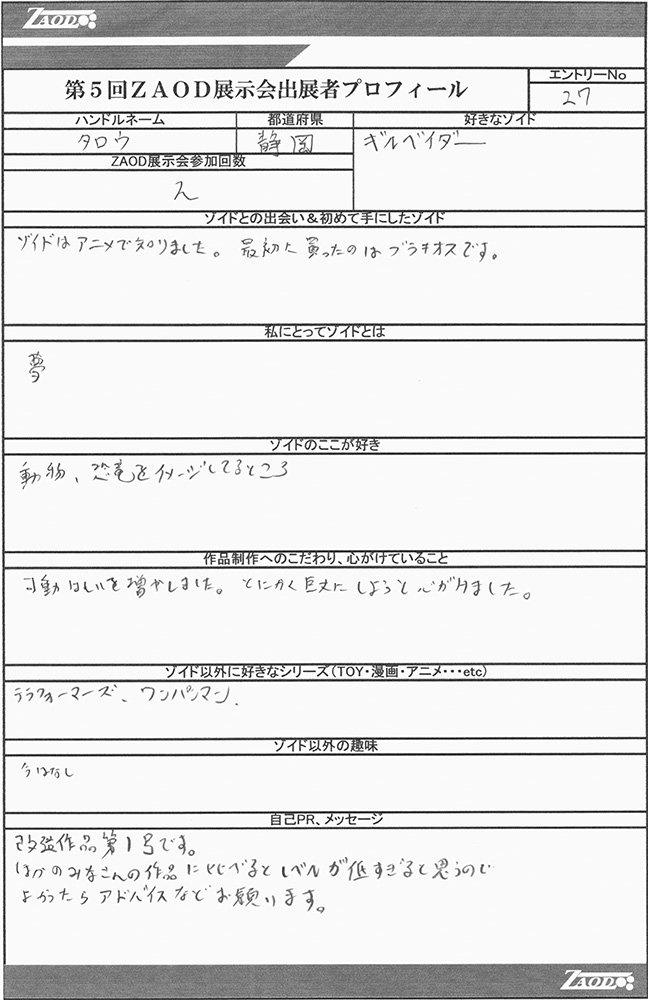 ZAOD
第5回ZAOD展示会出展者プロフィール
エントリーNo
27
ハンドルネーム
タロウ
都道府県
静岡
好きなゾイド
ギルベイダー
ZAOD展示会参加回数
ゾイドとの出会い＆初めて手にしたゾイド
ゾイドはアニメで知りました。最初に買ったのはブラキオスです。
私にとってゾイドとは
夢
ゾイドのここが好き
動物、恐竜をイメージしてるところ
作品制作へのこだわり、心がけていること
可動はんいを増やしました。とにかく巨大にしようと心がけました。
ゾイド以外に好きなシリーズ（TOY・漫画・アニメ・・・etc）
テラフォーマーズ、ワンパンマン、
ゾイド以外の趣味
今はなし
自己PR、メッセージ
改造作品第1号です。
ほかのみなさんの作品に比べるとレベルが低すぎると思うので
よかったらアドバイスなどお願いします。
ZAOD